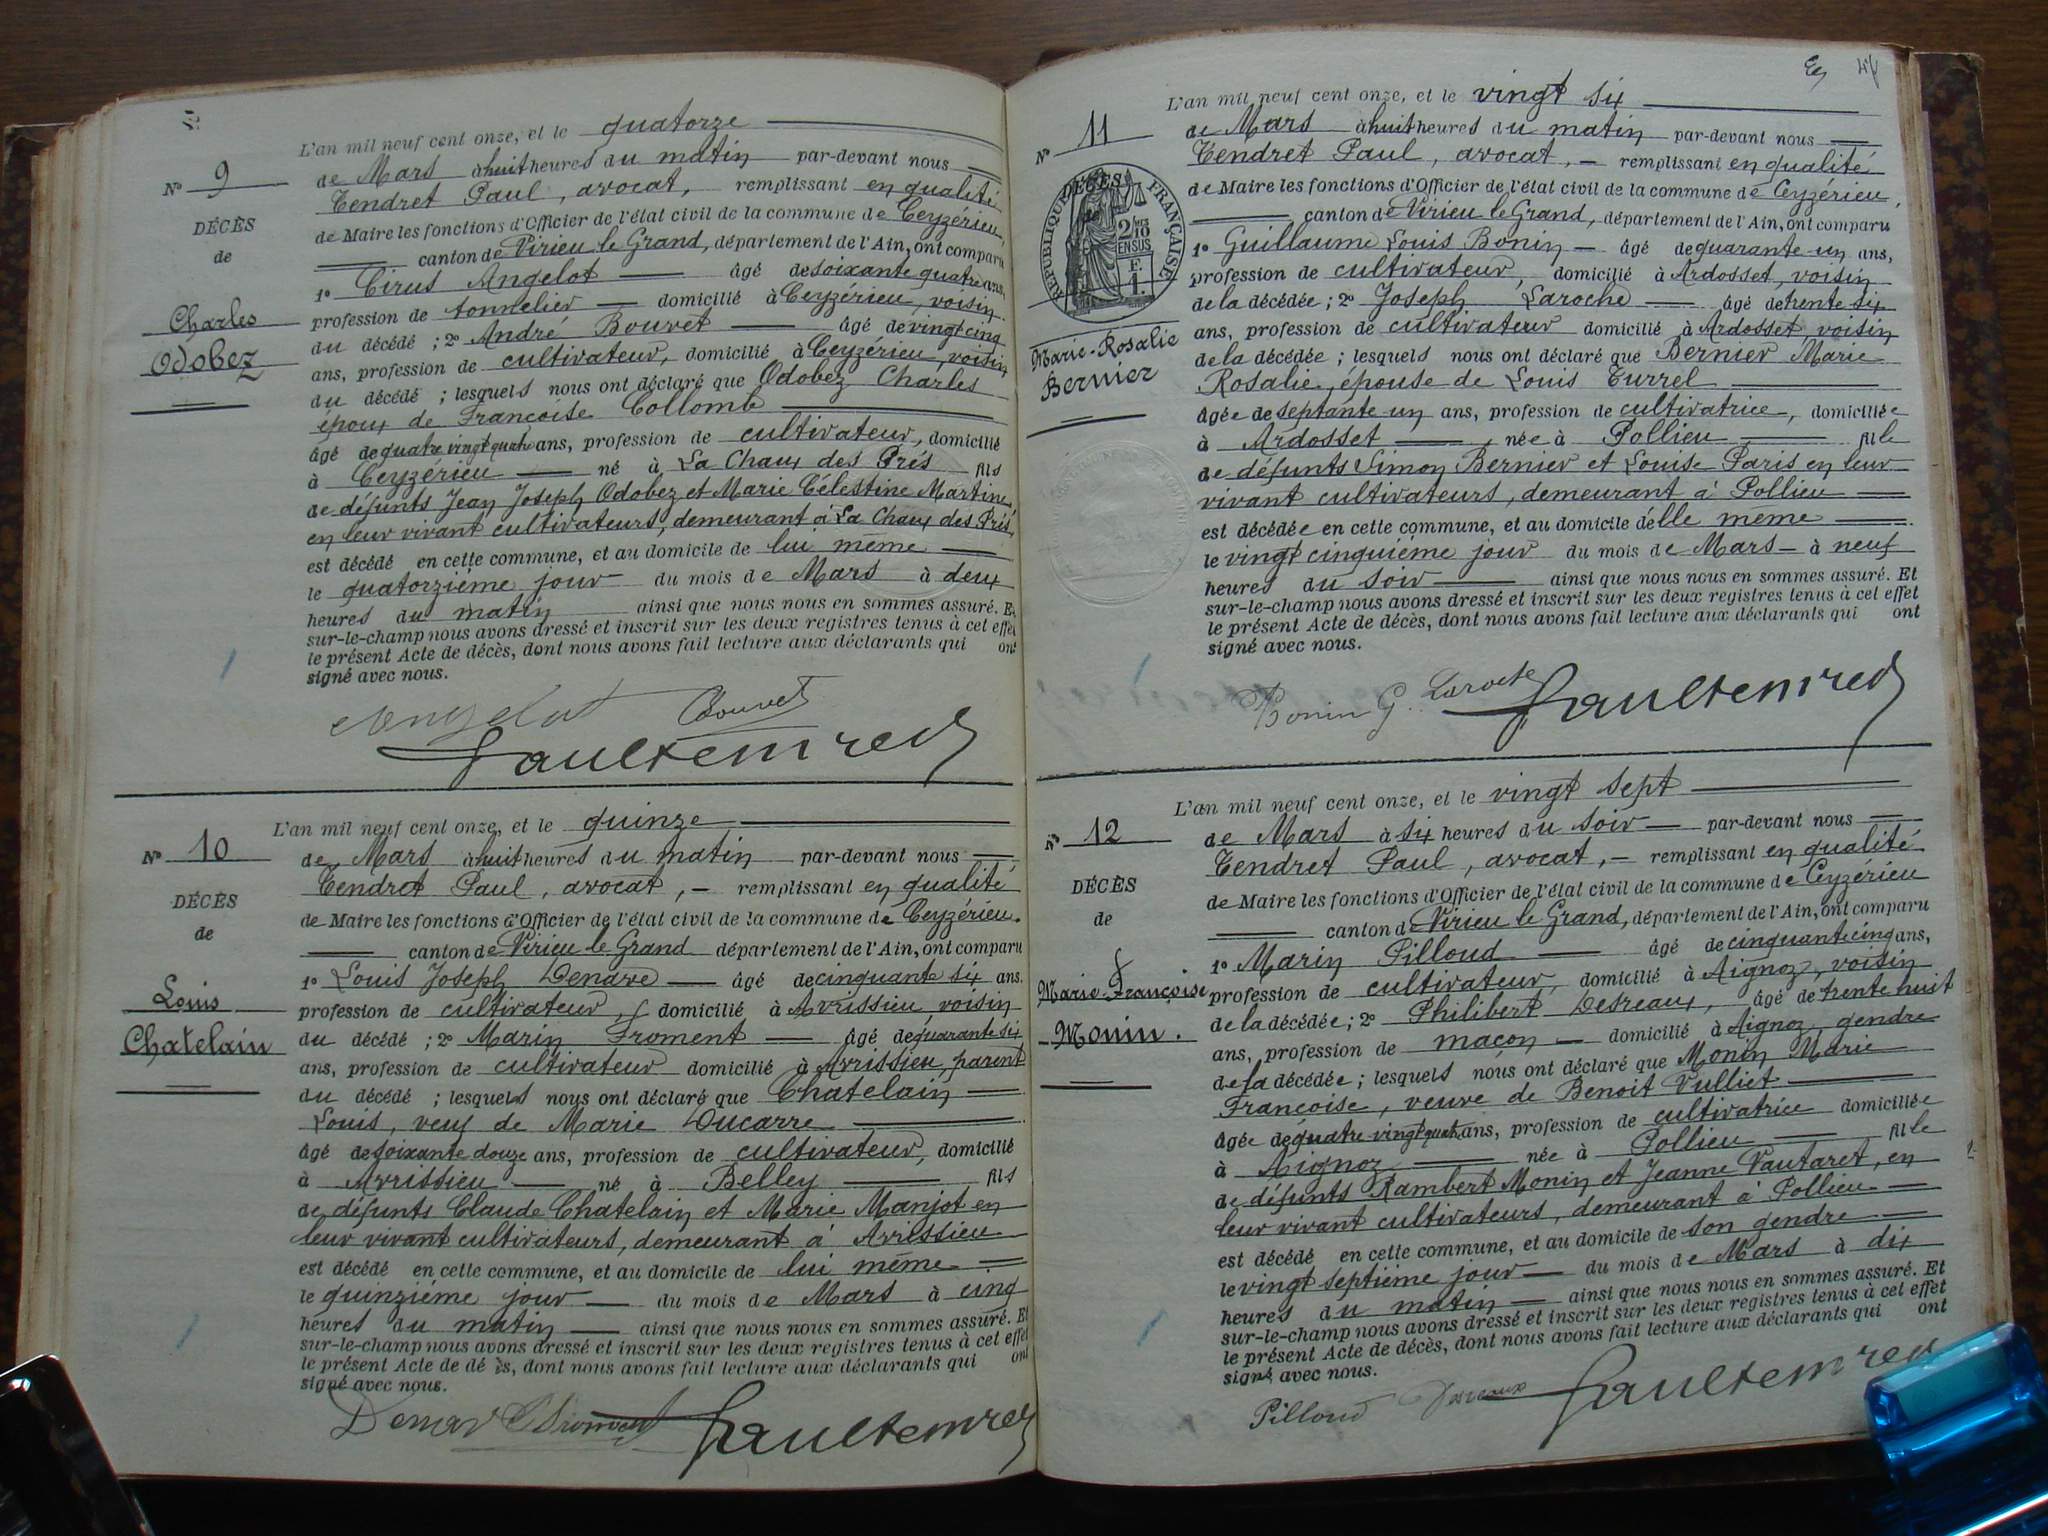 L'an mil neuf cent onze, et le quatorze
de Mars à huit heures du matin par-devant nous
N° 9
Tendret Paul, avocat, remplissant en qualité
DÉCÈS
de Maire les fonctions d'Officier de l'état civil de la commune de Ceyzérieu,
de
canton de Virieu le Grand, département de l'Ain, ont comparu
1° Cirus Angelot âgé de soixante quatre ans,
Charles
profession de tonnelier domicilié à Ceyzérieu, voisin
Odobez
du décédé ; 2° André Bouvet âgé de vingt cinq
ans, profession de cultivateur, domicilié à Ceyzérieu, voisin
du décédé ; lesquels nous ont déclaré que Odobez Charles
époux de Françoise Collomb
âgé de quatre vingt quatre ans, profession de cultivateur, domicilié
à Ceyzérieu né à La Chaux des Prés fils
de défunts Jean Joseph Odobez et Marie Célestine Martine,
en leur vivant cultivateurs, demeurant à La Chaux des Prés,
est décédé en cette commune, et au domicile de lui même
le quatorzième jour du mois de Mars à deux
heures du matin ainsi que nous nous en sommes assuré. Et
sur-le-champ nous avons dressé et inscrit sur les deux registres tenus à cet effet
le présent Acte de décès, dont nous avons fait lecture aux déclarants qui ont
signé avec nous.
Angelot Bouvet
Paul Tendret
L'an mil neuf cent onze, et le quinze
N° 10
de Mars à huit heures du matin par-devant nous
Tendret Paul, avocat, remplissant en qualité
DÉCÈS
de Maire les fonctions d'Officier de l'état civil de la commune de Ceyzérieu.
de
canton de Virieu le Grand département de l'Ain, ont comparu
1° Louis Joseph Denare âgé de cinquante six ans.
Louis
profession de cultivateur, domicilié à Avrissieu, voisin
Chatelain
du décédé ; 2° Marin Froment âgé de quarante six
ans, profession de cultivateur domicilié à Avrissieu, parent
du décédé ; lesquels nous ont déclaré que Chatelain
Louis, veuf de Marie Ducarre
âgé de soixante douze ans, profession de cultivateur, domicilié
à Avrissieu né à Belley fils
de défunts Claude Chatelain et Marie Manjot en
leur vivant cultivateurs, demeurant à Avrissieu
est décédé en cette commune, et au domicile de lui même
le quinzième jour du mois de Mars à cinq
heures du matin ainsi que nous nous en sommes assuré. Et
sur-le-champ nous avons dressé et inscrit sur les deux registres tenus à cet effet
le présent Acte de décès, dont nous avons fait lecture aux déclarants qui ont
signé avec nous.
Froment Paul Tendret
L'an mil neuf cent onze, et le vingt six
N° 11
de Mars à huit heures du matin par-devant nous
Tendret Paul, avocat, remplissant en qualité
RÉPUBLIQUE FRANÇAISE
DÉCÈS
de
2/10 EN SUS
F. 1.
de Maire les fonctions d'Officier de l'état civil de la commune de Ceyzérieu,
canton de Virieu le Grand, département de l'Ain, ont comparu
1° Guillaume Louis Bonin âgé de quarante un ans,
profession de cultivateur, domicilié à Ardosset, voisin
de la décédée ; 2° Joseph Laroche âgé de trente six
Marie-Rosalie
ans, profession de cultivateur domicilié à Ardosset, voisin
Bernier
de la décédée ; lesquels nous ont déclaré que Bernier Marie
Rosalie, épouse de Louis Turrel
âgée de septante un ans, profession de cultivatrice, domiciliée
à Ardosset née à Pollieu fille
de défunts Simon Bernier et Louise Paris en leur
vivant cultivateurs, demeurant à Pollieu
est décédée en cette commune, et au domicile d'elle même
le vingt cinquième jour du mois de Mars à neuf
heures du soir ainsi que nous nous en sommes assuré. Et
sur-le-champ nous avons dressé et inscrit sur les deux registres tenus à cet effet
le présent Acte de décès, dont nous avons fait lecture aux déclarants qui ont
signé avec nous.
Bonin G. Laroche Paul Tendret
L'an mil neuf cent onze, et le vingt sept
N° 12
de Mars à six heures du soir par-devant nous
Tendret Paul, avocat, remplissant en qualité
DÉCÈS
de Maire les fonctions d'Officier de l'état civil de la commune de Ceyzérieu
de
canton de Virieu le Grand, département de l'Ain, ont comparu
1° Marin Pilloud âgé de cinquante cinq ans,
Marie-Françoise
profession de cultivateur, domicilié à Aignoz, voisin
Monin.
de la décédée ; 2° Philibert Desreaux, âgé de trente huit
ans, profession de maçon domicilié à Aignoz, gendre
de la décédée ; lesquels nous ont déclaré que Monin Marie
Françoise, veuve de Benoit Vulliet
âgée de quatre vingt quatre ans, profession de cultivatrice domiciliée
à Aignoz née à Pollieu fille
de défunts Rambert Monin et Jeanne Vautaret, en
leur vivant cultivateurs, demeurant à Pollieu
est décédé en cette commune, et au domicile de son gendre
le vingt septième jour du mois de Mars à dix
heures du matin ainsi que nous nous en sommes assuré. Et
sur-le-champ nous avons dressé et inscrit sur les deux registres tenus à cet effet
le présent Acte de décès, dont nous avons fait lecture aux déclarants qui ont
signé avec nous.
Pilloud Desreaux Paul Tendret